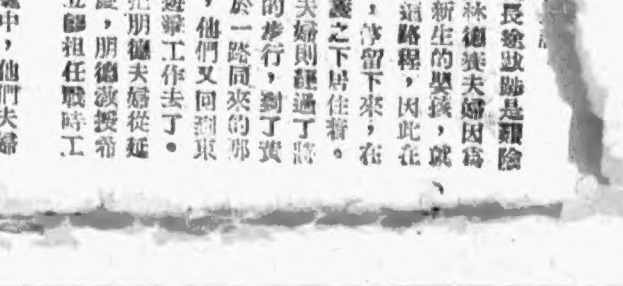 長途跋踄是艱險
林德賽夫婦因爲
新生的嬰孩，就
道路程，因此在
，停留下來；在
之下居住着。
夫婦則經過了將
的步行，到了
於一路同來的那
，他們又回到東
遊擊工作去了。
把朋德夫婦從延
，朋德敎授希
立卽担任戰時工
中，他們夫婦